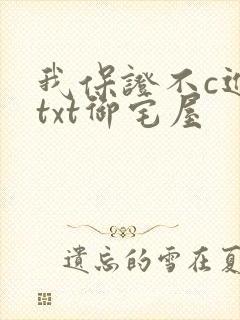 我保證不c近
txt御宅屋
遺忘的雪在夏